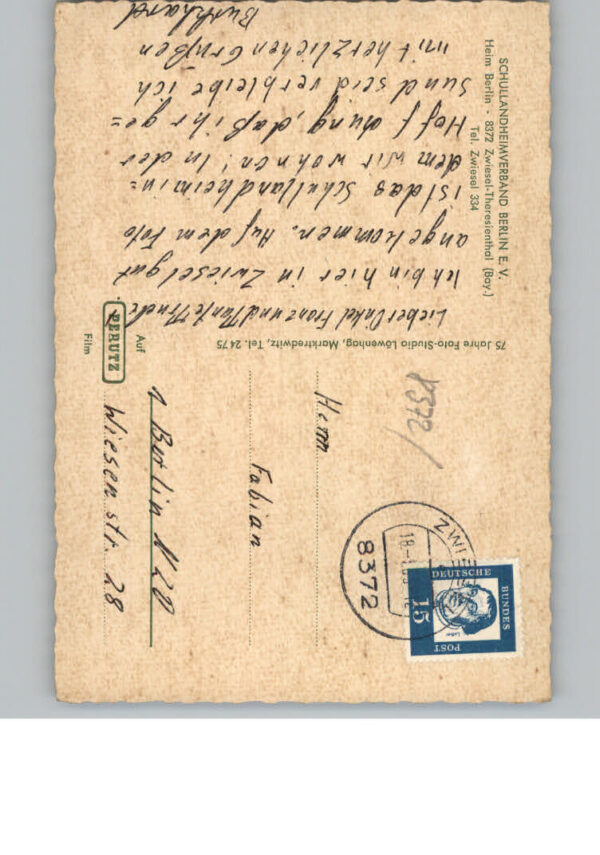 SCHULLANDHEIMVERBAND BERLIN E. V.
Heim Berlin - 8372 Zwiesel-Theresienthal (Bay.)
Tel. Zwiesel 334
Lieber Onkel Franz und Tante Trude
Ich bin hier in Zwiesel gut
angekommen. Auf dem Foto
ist das Schullandheim in=
dem wir wohnen! In der
Hoffnung, daß ihr ge=
sund seid verbleibe ich
mit herzlichen Grüßen
Burkhard
75 Jahre Foto-Studio Löwenhag, Marktredwitz, Tel. 2475
Auf
PERUTZ
Film
8372/
ZWIESEL
8372
DEUTSCHE
BUNDES
POST
15
Luther
Herrn
Fabian
1 Berlin N 20
Wiesenstr. 28